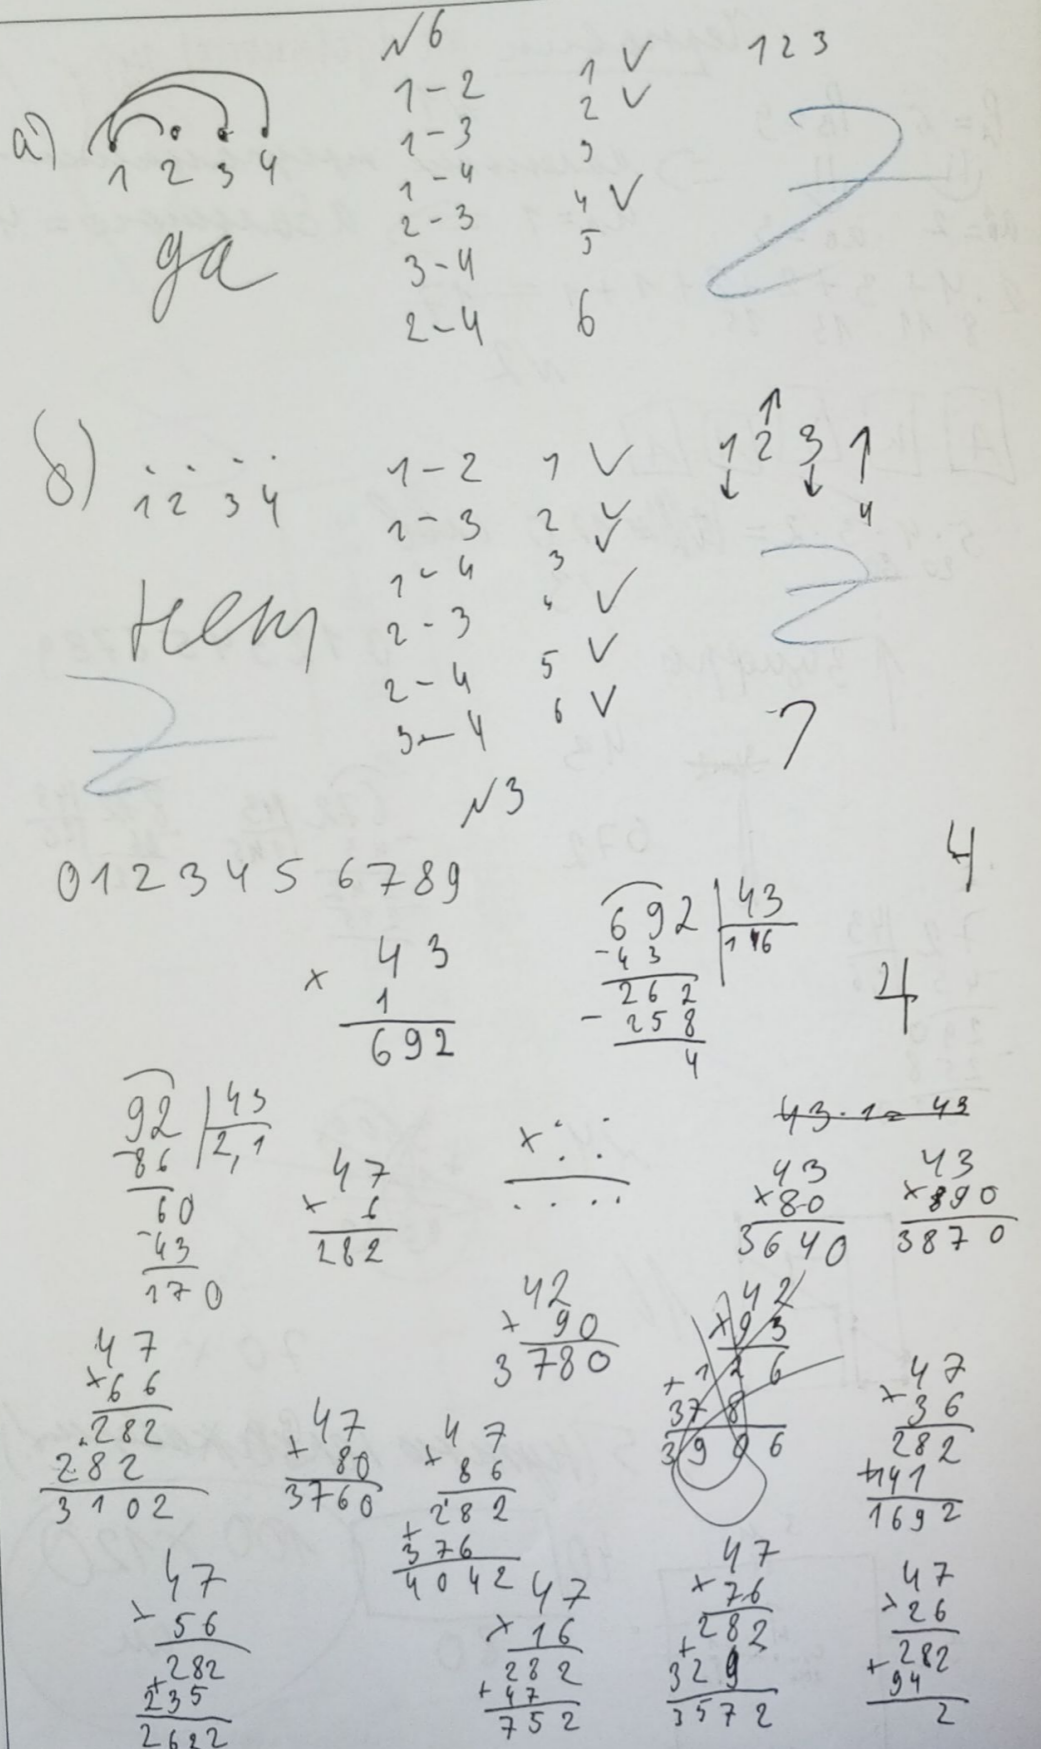 №6
1 2 3
а)
1 2 3 4
да
1-2 1 ✓
1-3 2 ✓
1-4 3
2-3 4 ✓
3-4 5
2-4 6
б)
1 2 3 4
нет
1-2 1 ✓
1-3 2 ✓
1-4 3 ✓
2-3 ✓
2-4 5 ✓
3-4 6 ✓
1 2 3 4
7
№3
0 1 2 3 4 5 6 7 8 9
4
4
43
× 1
692
692 | 43
-43 16
262
-258
4
92 | 43
-86 2,1
60
-43
170
47
× 6
282
× . .
. .
. . . .
43·1=43
43
×80
3640
43
×890
3870
42
×90
3780
42
×93
126
+378
3906
47
×66
282
282
3102
47
×80
3760
47
×86
282
+376
4042
47
×36
282
+141
1692
47
×56
282
+235
2622
47
×16
282
+47
752
47
×76
282
+329
3572
47
×26
282
+94
2